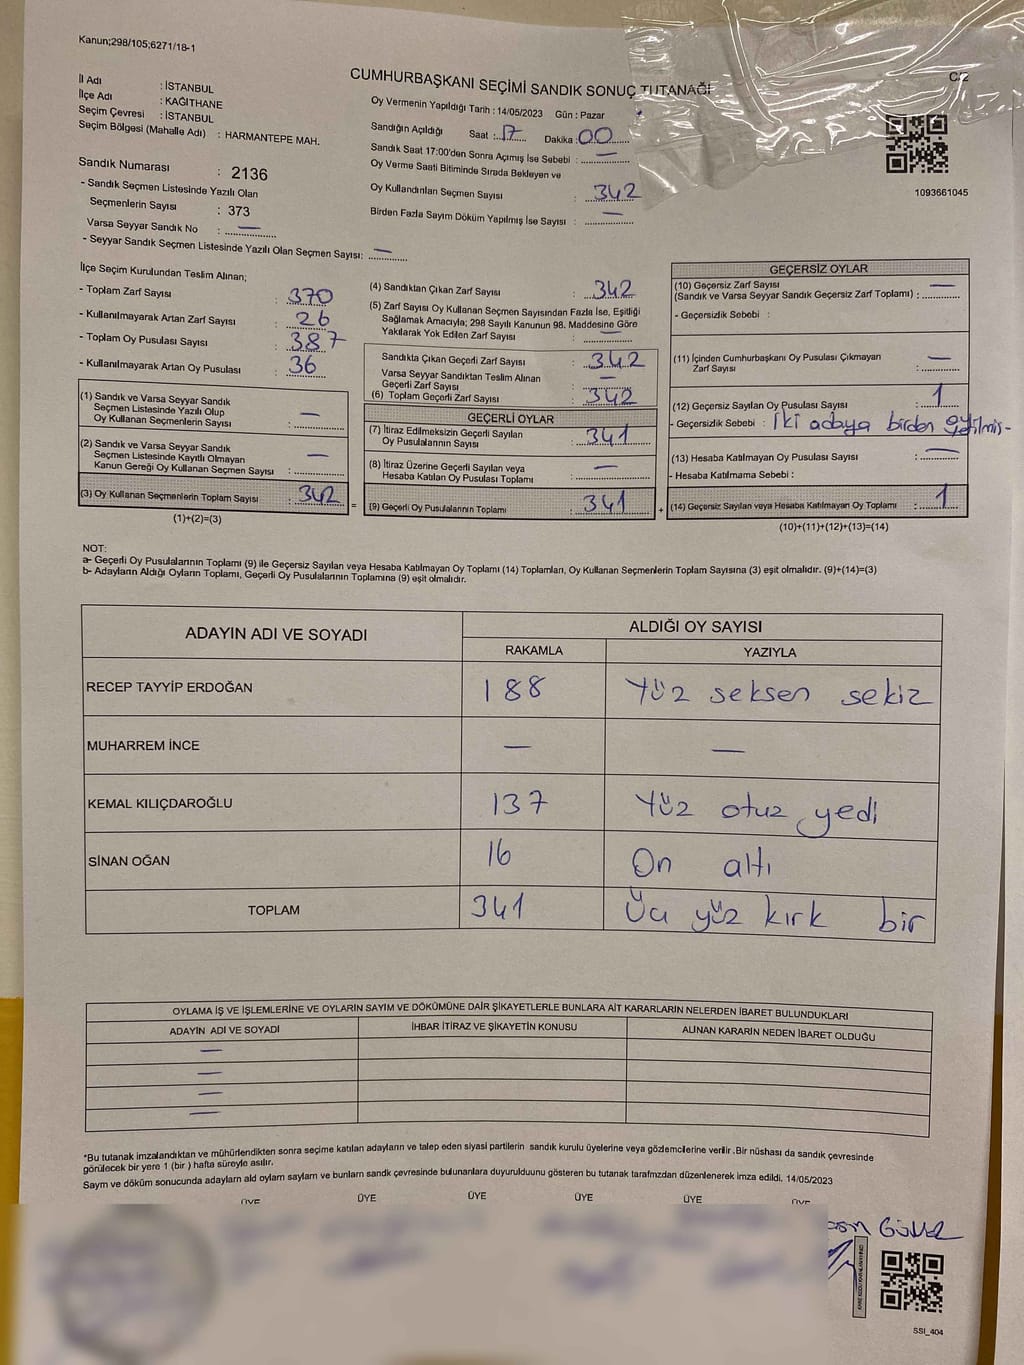 Kanun;298/105;6271/18-1
CUMHURBAŞKANI SEÇİMİ SANDIK SONUÇ TUTANAĞI
C/2
İl Adı : İSTANBUL
İlçe Adı : KAĞITHANE
Seçim Çevresi : İSTANBUL
Seçim Bölgesi (Mahalle Adı) : HARMANTEPE MAH.
Sandık Numarası : 2136
- Sandık Seçmen Listesinde Yazılı Olan
Seçmenlerin Sayısı : 373
Varsa Seyyar Sandık No : —
- Seyyar Sandık Seçmen Listesinde Yazılı Olan Seçmen Sayısı: —
Oy Vermenin Yapıldığı Tarih : 14/05/2023 Gün : Pazar
Sandığın Açıldığı Saat : 17 Dakika : 00
Sandık Saat 17:00'den Sonra Açımış İse Sebebi : —
Oy Verme Saati Bitiminde Sırada Bekleyen ve
Oy Kullandırılan Seçmen Sayısı : 342
Birden Fazla Sayım Döküm Yapılmış İse Sayısı : —
1093661045
İlçe Seçim Kurulundan Teslim Alınan;
- Toplam Zarf Sayısı : 370
- Kullanılmayarak Artan Zarf Sayısı : 26
- Toplam Oy Pusulası Sayısı : 387
- Kullanılmayarak Artan Oy Pusulası : 36
(1) Sandık ve Varsa Seyyar Sandık
Seçmen Listesinde Yazılı Olup
Oy Kullanan Seçmenlerin Sayısı : —
(2) Sandık ve Varsa Seyyar Sandık
Seçmen Listesinde Kayıtlı Olmayan
Kanun Gereği Oy Kullanan Seçmen Sayısı : —
(3) Oy Kullanan Seçmenlerin Toplam Sayısı : 342
(1)+(2)=(3)
=
(4) Sandıktan Çıkan Zarf Sayısı : 342
(5) Zarf Sayısı Oy Kullanan Seçmen Sayısından Fazla İse, Eşitliği
Sağlamak Amacıyla; 298 Sayılı Kanunun 98. Maddesine Göre
Yakılarak Yok Edilen Zarf Sayısı : —
Sandıkta Çıkan Geçerli Zarf Sayısı : 342
Varsa Seyyar Sandıktan Teslim Alınan
Geçerli Zarf Sayısı : —
(6) Toplam Geçerli Zarf Sayısı : 342
GEÇERLİ OYLAR
(7) İtiraz Edilmeksizin Geçerli Sayılan
Oy Pusulalarının Sayısı : 341
(8) İtiraz Üzerine Geçerli Sayılan veya
Hesaba Katılan Oy Pusulası Toplamı : —
(9) Geçerli Oy Pusulalarının Toplamı : 341
+
GEÇERSİZ OYLAR
(10) Geçersiz Zarf Sayısı —
(Sandık ve Varsa Seyyar Sandık Geçersiz Zarf Toplamı) :
- Geçersizlik Sebebi :
(11) İçinden Cumhurbaşkanı Oy Pusulası Çıkmayan —
Zarf Sayısı :
(12) Geçersiz Sayılan Oy Pusulası Sayısı : 1
- Geçersizlik Sebebi : İki adaya birden
(13) Hesaba Katılmayan Oy Pusulası Sayısı : —
- Hesaba Katılmama Sebebi :
(14) Geçersiz Sayılan veya Hesaba Katılmayan Oy Toplamı : 1
(10)+(11)+(12)+(13)=(14)
NOT:
a- Geçerli Oy Pusulalarının Toplamı (9) ile Geçersiz Sayılan veya Hesaba Katılmayan Oy Toplamı (14) Toplamları, Oy Kullanan Seçmenlerin Toplam Sayısına (3) eşit olmalıdır. (9)+(14)=(3)
b- Adayların Aldığı Oyların Toplamı, Geçerli Oy Pusulalarının Toplamına (9) eşit olmalıdır.
ADAYIN ADI VE SOYADI
ALDIĞI OY SAYISI
RAKAMLA YAZIYLA
RECEP TAYYİP ERDOĞAN 188 Yüz seksen sekiz
MUHARREM İNCE — —
KEMAL KILIÇDAROĞLU 137 Yüz otuz yedi
SİNAN OĞAN 16 On altı
TOPLAM 341 Üç yüz kırk bir
OYLAMA İŞ VE İŞLEMLERİNE VE OYLARIN SAYIM VE DÖKÜMÜNE DAİR ŞİKAYETLERLE BUNLARA AİT KARARLARIN NELERDEN İBARET BULUNDUKLARI
ADAYIN ADI VE SOYADI İHBAR İTİRAZ VE ŞİKAYETİN KONUSU ALINAN KARARIN NEDEN İBARET OLDUĞU
—
—
—
—
*Bu tutanak imzalandıktan ve mühürlendikten sonra seçime katılan adayların ve talep eden siyasi partilerin sandık kurulu üyelerine veya gözlemcilerine verilir .Bir nüshası da sandık çevresinde
görülecek bir yere 1 (bir ) hafta süreyle asılır.
Sayım ve döküm sonucunda adayların ald oylam saylam ve bunların sandık çevresinde bulunanlara duyurulduunu gösteren bu tutanak tarafmzdan düzenlenerek imza edildi. 14/05/2023
ÜYE ÜYE ÜYE ÜYE ÜYE ÜYE
SSI_404